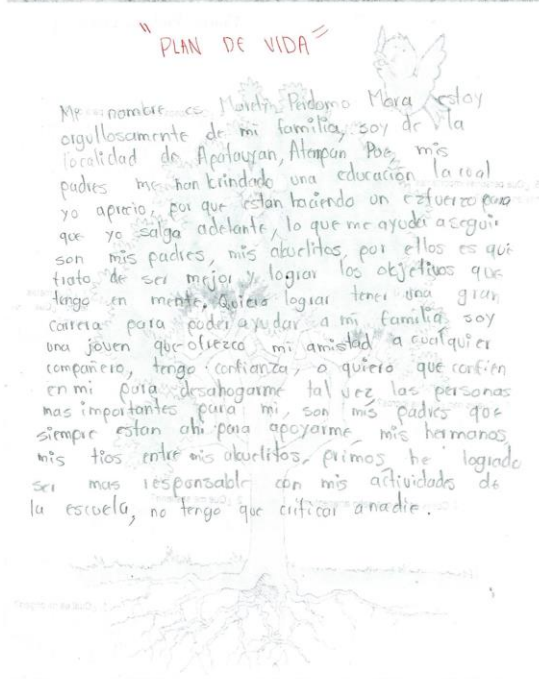 "PLAN DE VIDA"
Me nombre es Maretin Perdomo Mara estoy
orgullosamente de mi familia, soy de la
localidad de Apatauyan, Atempan Pue, mis
padres me han brindado una educación la cual
yo aprecio, por que estan haciendo un esfuerzo para
que yo salga adelante, lo que me ayuda a seguir
son mis padres, mis abuelitos, por ellos es que
trato de ser mejor y lograr los objetivos que
tengo en mente. Quiero lograr tener una gran
carrera para poder ayudar a mi familia, soy
una joven que ofrezco mi amistad a cualquier
compañero, tengo confianza, o quiero que confien
en mi para desahogarme tal vez las personas
mas importantes para mi, son mis padres que
siempre estan ahi para apoyarme, mis hermanos,
mis tios entre mis abuelitos, primos he logrado
ser mas responsable con mis actividades de
la escuela, no tengo que criticar a nadie.